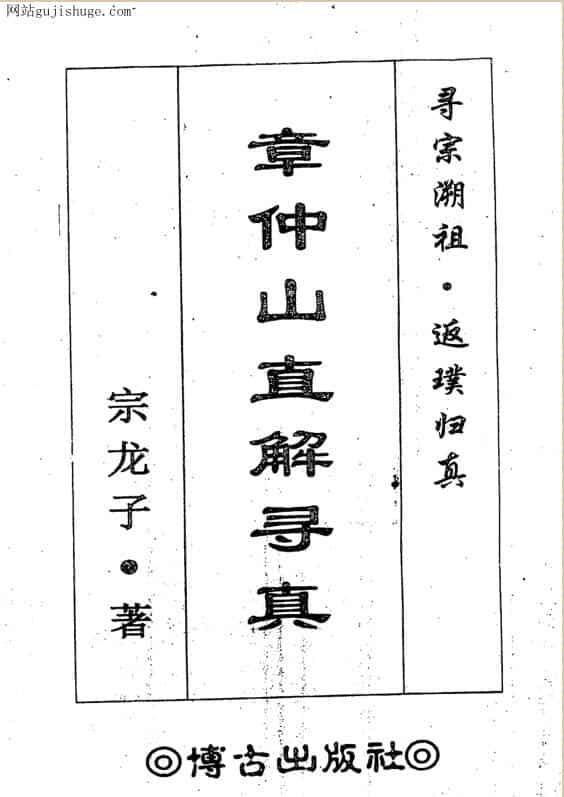 网站gujishuge.com
寻宗溯祖·返璞归真
章仲山直解寻真
宗龙子·著
◎博古出版社◎